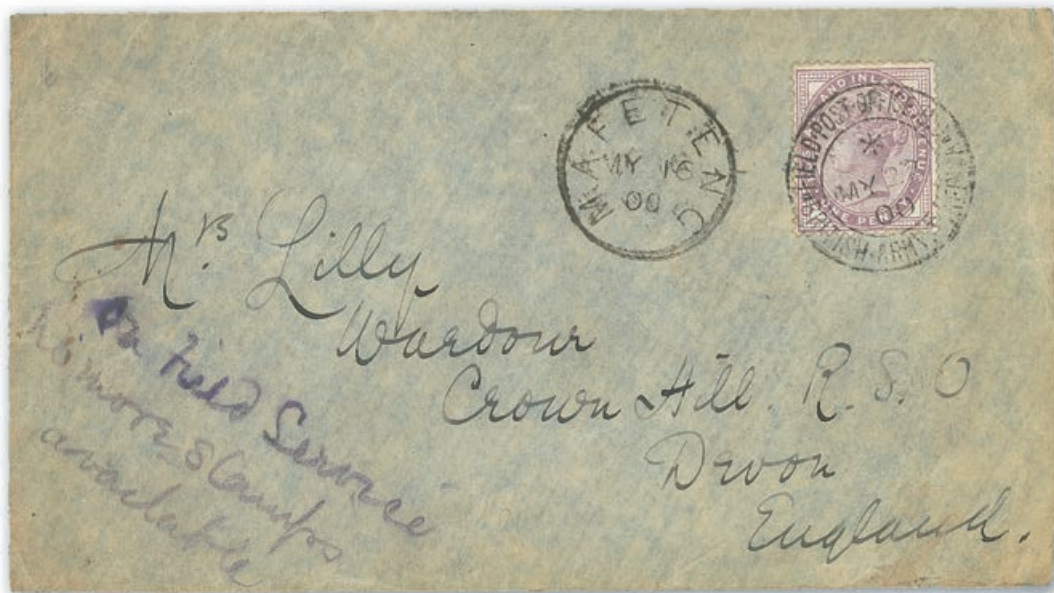 MAFETENG
MY 16
00
FIELD POST OFFICE
BRITISH ARMY
MY
00
Mrs Lilly
Wardour
Crown Hill. R. S. O
Devon
England.
On Field Service
No more stamps
available